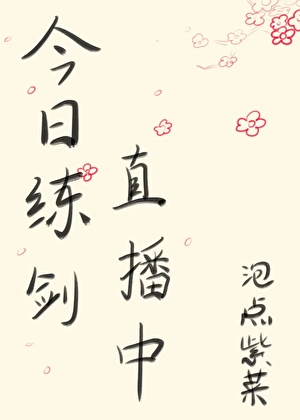 今日练剑
直播中
泡点紫菜